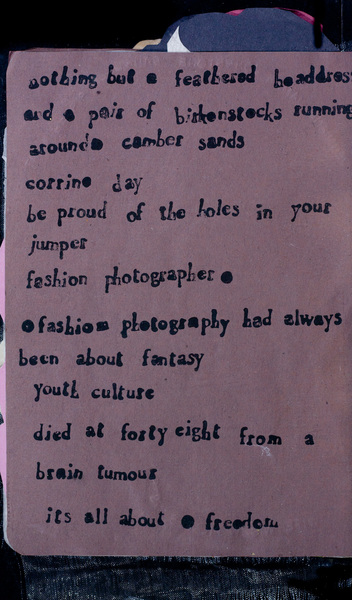 nothing but a feathered headdress
and a pair of birkenstocks running
around camber sands
corrine day
be proud of the holes in your
jumper
fashion photographer
fashion photography had always
been about fantasy
youth culture
died at forty eight from a
brain tumour
its all about freedom